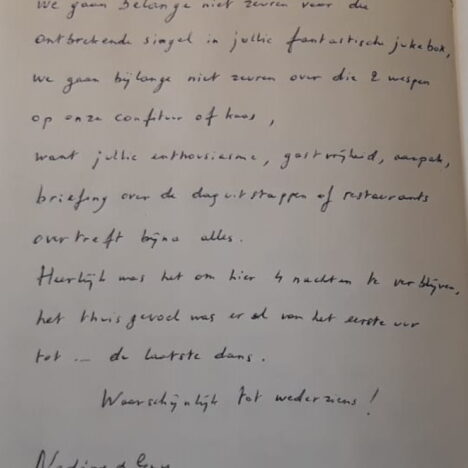 We gaan belange niet zeuren voor die
ontbrekende singel in jullie fantastische jukebox,
we gaan bijlange niet zeuren over die 2 wespen
op onze confituur of kaas,
want jullie enthousiasme, gastvrijheid, aanpak,
briefing over de daguitstappen of restaurants
overtreft bijna alles.
Heerlijk was het om hier 4 nachten te verblijven,
het thuisgevoel was er al van het eerste uur
tot ... de laatste dans.
Waarschijnlijk tot wederziens!
Nadine &